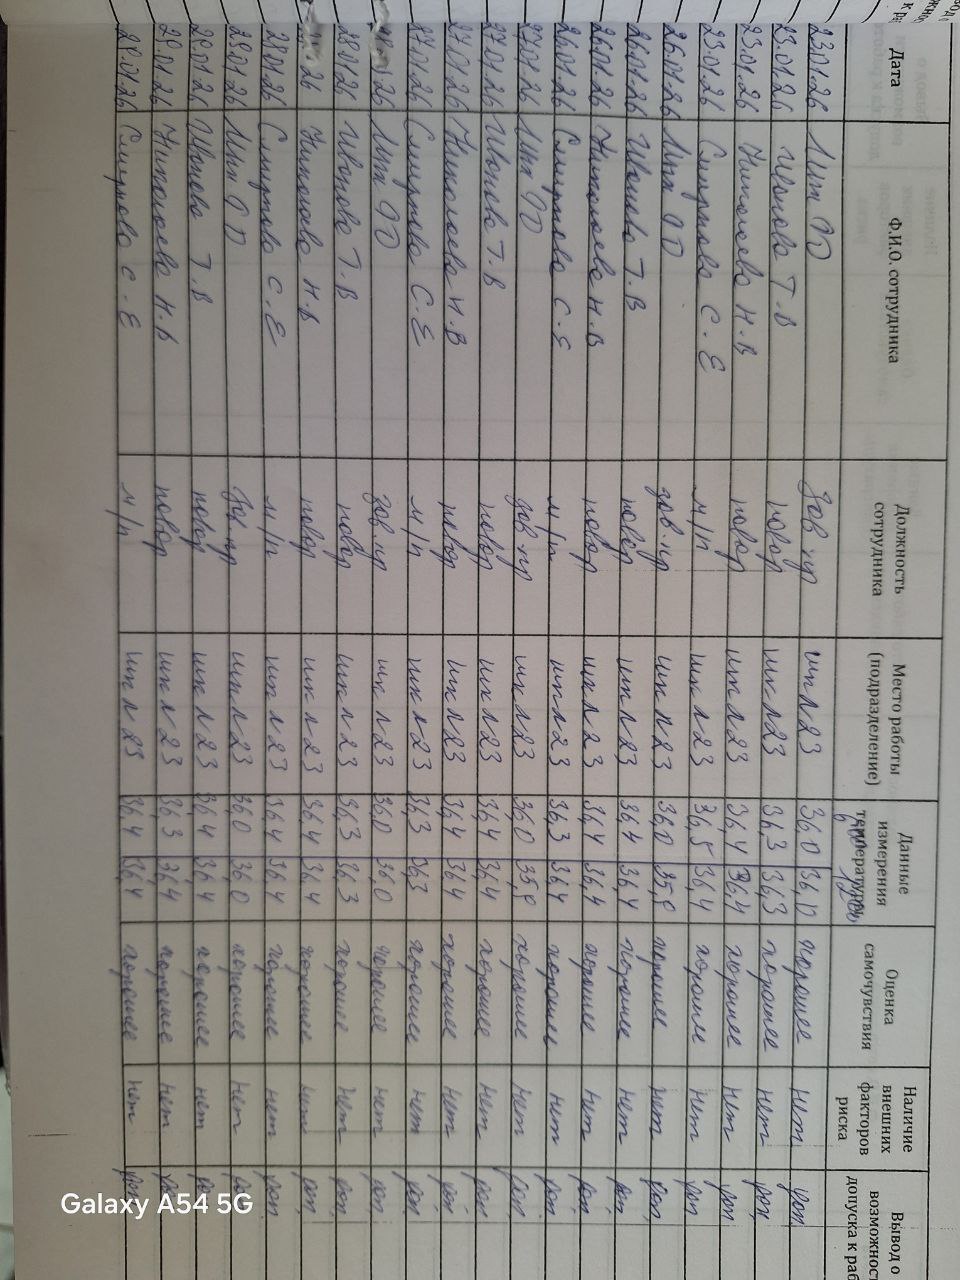 Дата Ф.И.О. сотрудника Должность сотрудника Место работы (подразделение) Данные измерения температуры Оценка самочувствия Наличие внешних факторов риска Вывод о возможнос допуска к раб
23.01.26 зав пр шк л 23 36,0 36,0 хорошее нет доп
23.01.26 Иванова Т.В повар шк л 23 36,3 36,3 хорошее нет доп
23.01.26 Николаева Н.В повар шк л 23 36,4 36,4 хорошее нет доп
23.01.26 Смирнова С.Е м/п шк л 23 36,5 36,4 хорошее нет доп
26.01.26 зав.пр шк л 23 36,0 35,9 хорошее нет доп
26.01.26 Иванова Т.В повар шк л 23 36,4 36,4 хорошее нет доп
26.01.26 Николаева Н.В повар шк л 23 36,4 36,4 хорошее нет доп
26.01.26 Смирнова С.Е м/п шк л 23 36,3 36,4 хорошее нет доп
27.01.26 зав пр шк л 23 36,0 35,9 хорошее нет доп
27.01.26 Иванова Т.В повар шк л 23 36,4 36,4 хорошее нет доп
27.01.26 Николаева Н.В повар шк л 23 36,4 36,4 хорошее нет доп
27.01.26 Смирнова С.Е м/п шк л 23 36,3 36,3 хорошее нет доп
зав.пр шк л 23 36,0 36,0 хорошее нет доп
28.01.26 Иванова Т.В повар шк л 23 36,3 36,3 хорошее нет доп
26 Николаева Н.В повар шк л 23 36,4 36,4 хорошее нет доп
28.01.26 Смирнова С.Е м/п шк л 23 36,4 36,4 хорошее нет доп
29.01.26 зав.пр шк л 23 36,0 36,0 хорошее нет доп
29.01.26 Иванова Т.В повар шк л 23 36,4 36,4 хорошее нет доп
29.01.26 Николаева Н.В повар шк л 23 36,3 36,4 хорошее нет доп
29.01.26 Смирнова С.Е м/п шк л 23 36,4 36,4 хорошее нет доп
Galaxy A54 5G